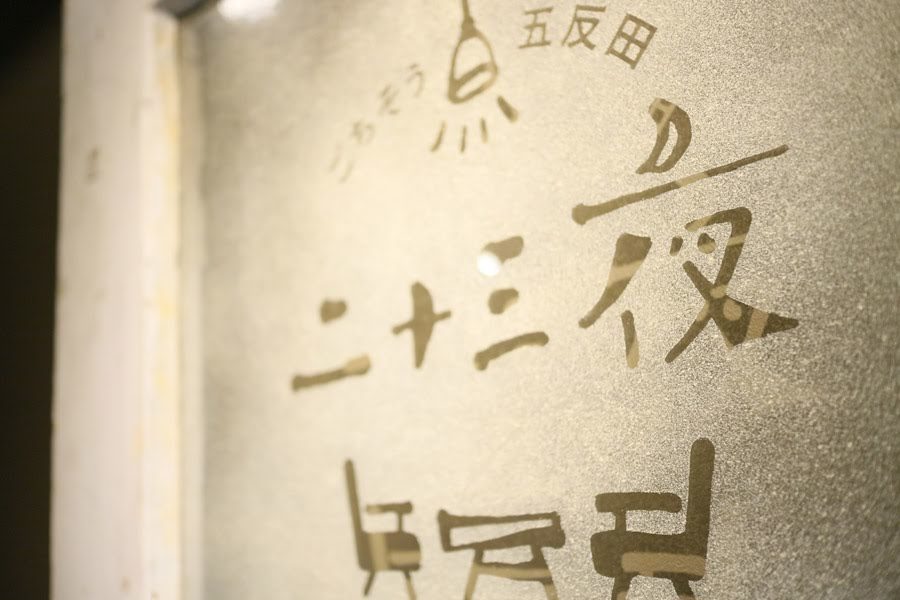 ごちそう 五反田
二十三夜